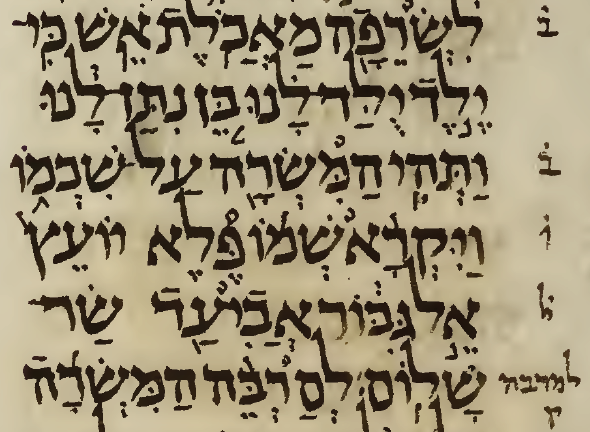 לִשְׂרֵפָה מַאֲכֹלֶת אֵשׁ כִּי ב̇
יֶלֶד יֻלַּד לָנוּ בֵּן נִתַּן לָנוּ
וַתְּהִי הַמִּשְׂרָה עַל שִׁכְמוֹ ב̇
וַיִּקְרָא שְׁמוֹ פֶּלֶא יוֹעֵץ
אֵל גִּבּוֹר אֲבִיעַד שַׂר ל̇
שָׁלוֹם לםַרְבֵּה הַמִּשְׂרָה למרבה
ק